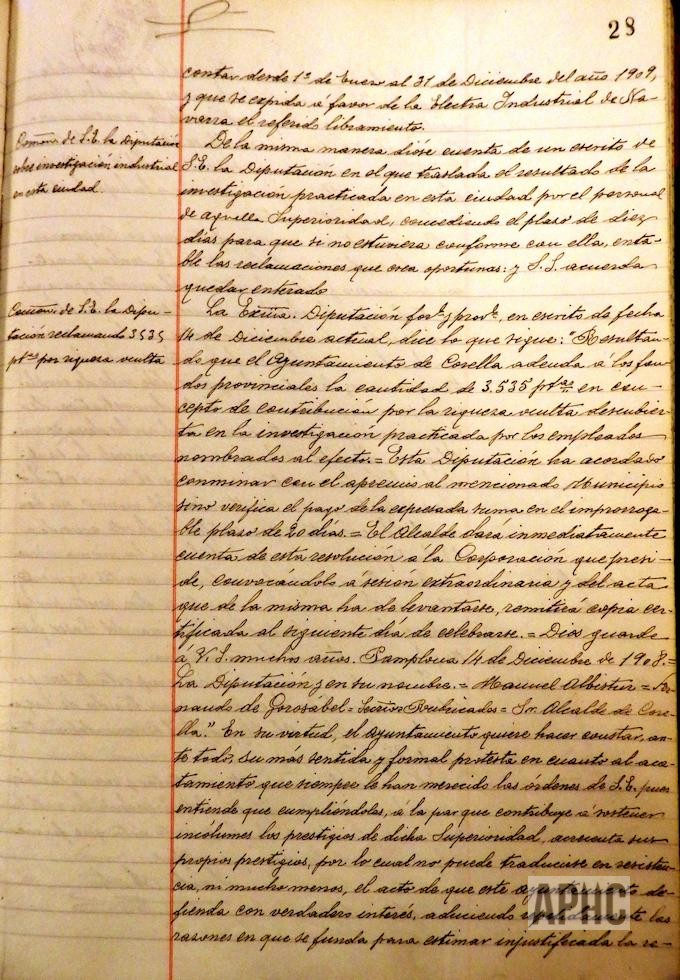 28
contar desde 1º de Enero al 31 de Diciembre del año 1909,
y que se expida á favor de la Electra Industrial de Na-
varra el referido libramiento.
Comón. de S.E. la Diputación
sobre investigación industrial
en esta ciudad
De la misma manera dióse cuenta de un escrito de
S.E. la Diputación en el que traslada el resultado de la
investigación practicada en esta ciudad por el personal
de aquella Superioridad, concediendo el plazo de diez
días para que si no estuviera conforme con ella, enta-
ble las reclamaciones que crea oportunas: y S.S. acuerda
quedar enterado
Comón. de S.E. la Dipu-
tación reclamando 3535
ptas por riqueza oculta
La Excma. Diputación forl. y provl. en escrito de fecha
14 de Diciembre actual, dice lo que sigue: "Resultan-
do que el Ayuntamiento de Corella adeuda á los fon-
dos provinciales la cantidad de 3.535 ptas en con-
cepto de contribución por la riqueza oculta descubier-
ta en la investigación practicada por los empleados
nombrados al efecto.= Esta Diputación ha acordado
conminar con el apremio al mencionado Municipio
sino verifica el pago de la expresada suma en el improrroga-
ble plazo de 20 días.= El Alcalde dará inmediatamente
cuenta de esta resolución á la Corporación que presi-
de, convocándola á sesion extraordinaria y del acta
que de la misma ha de levantarse, remitirá copia cer-
tificada al siguiente día de celebrarse.= Dios guarde
á V.S. muchos años. Pamplona 14 de Diciembre de 1908.=
La Diputación y en su nombre.= Manuel Albistur =
de Gorosábel = Secrios. Rubricados = Sr. Alcalde de Core-
lla." En su virtud, el ayuntamiento quiere hacer constar, an-
te todo, su más sentida y formal protesta en cuanto al aca-
tamiento que siempre le han merecido las órdenes de S.E. pues
entiende que cumpliéndolas, á la par que contribuye á sostener
incólumes los prestigios de dicha Superioridad, acrecienta sus
propios prestigios, por lo cual no puede traducirse en resisten-
cia, ni mucho menos, el acto de que este ayuntamiento de-
fienda con verdadero interés, aduciendo las
razones en que se funda para estimar injustificada la re-
APHC